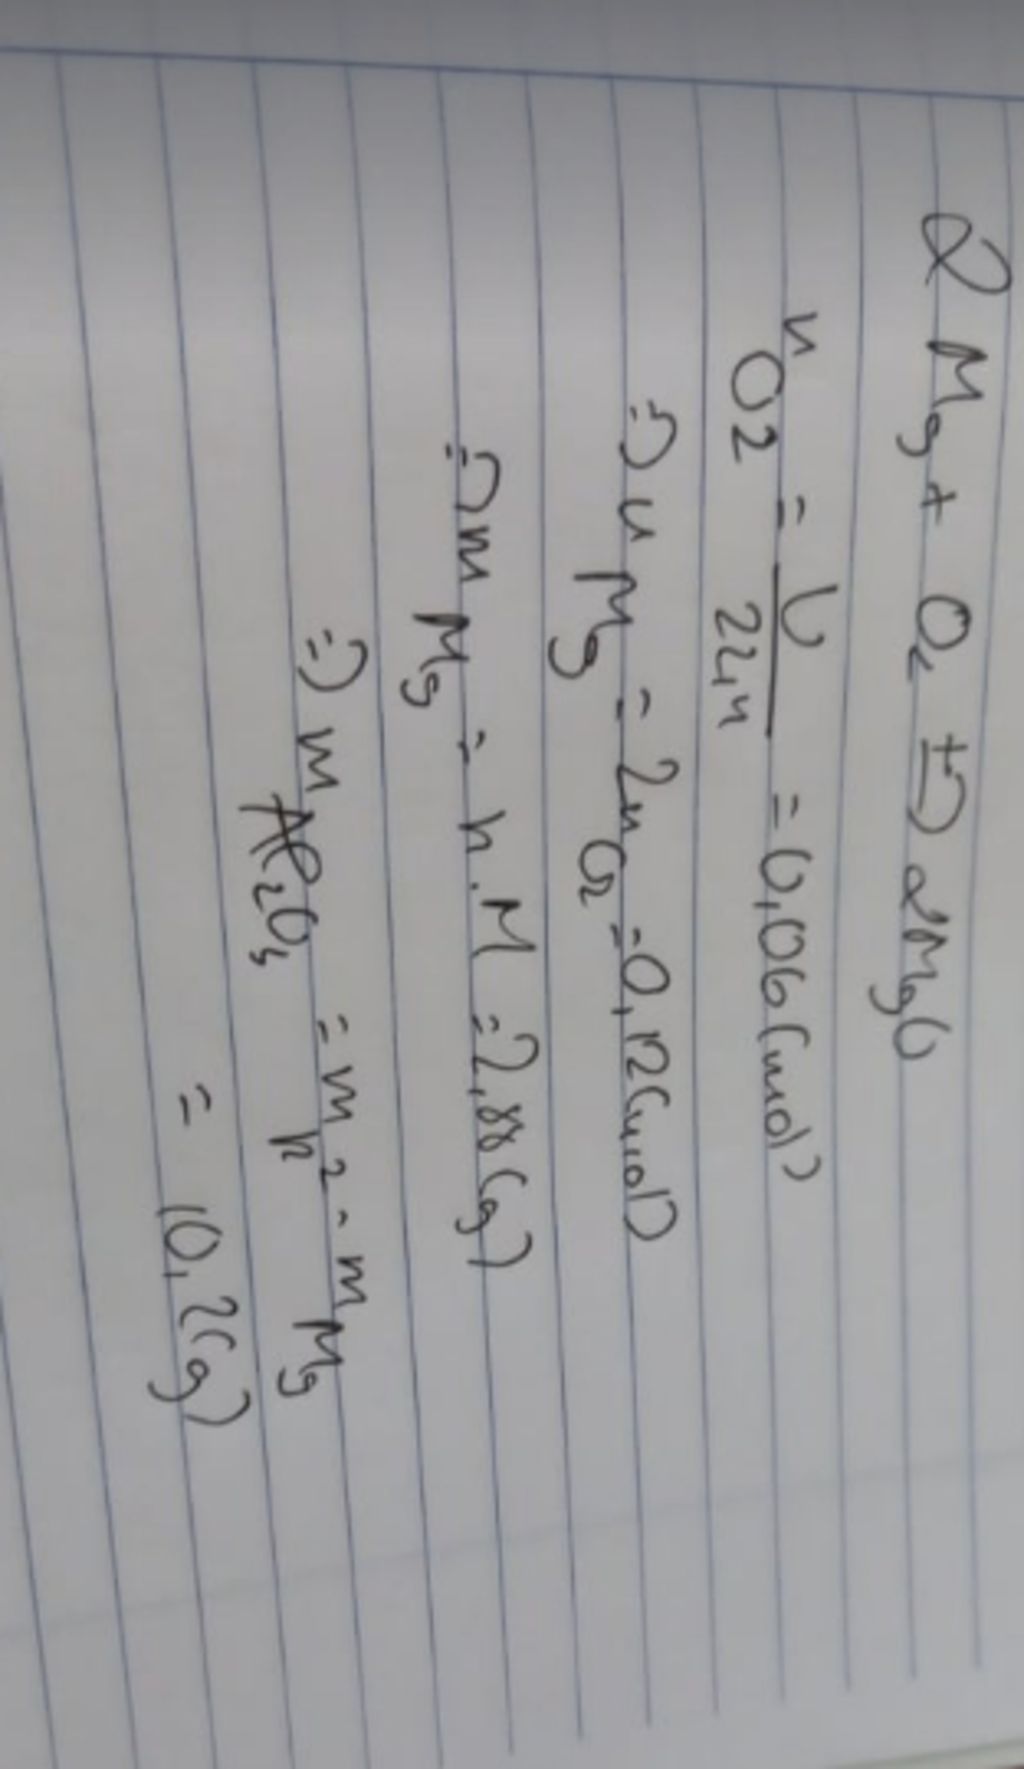 2 Mg + O2 t°→ 2MgO
nO2 = V/22,4 = 0,06 (mol)
=> n Mg = 2nO2 = 0,12 (mol)
=> m Mg = n.M = 2,88 (g)
=> m Al2O3 = m h2 - m Mg
= 10,2 (g)